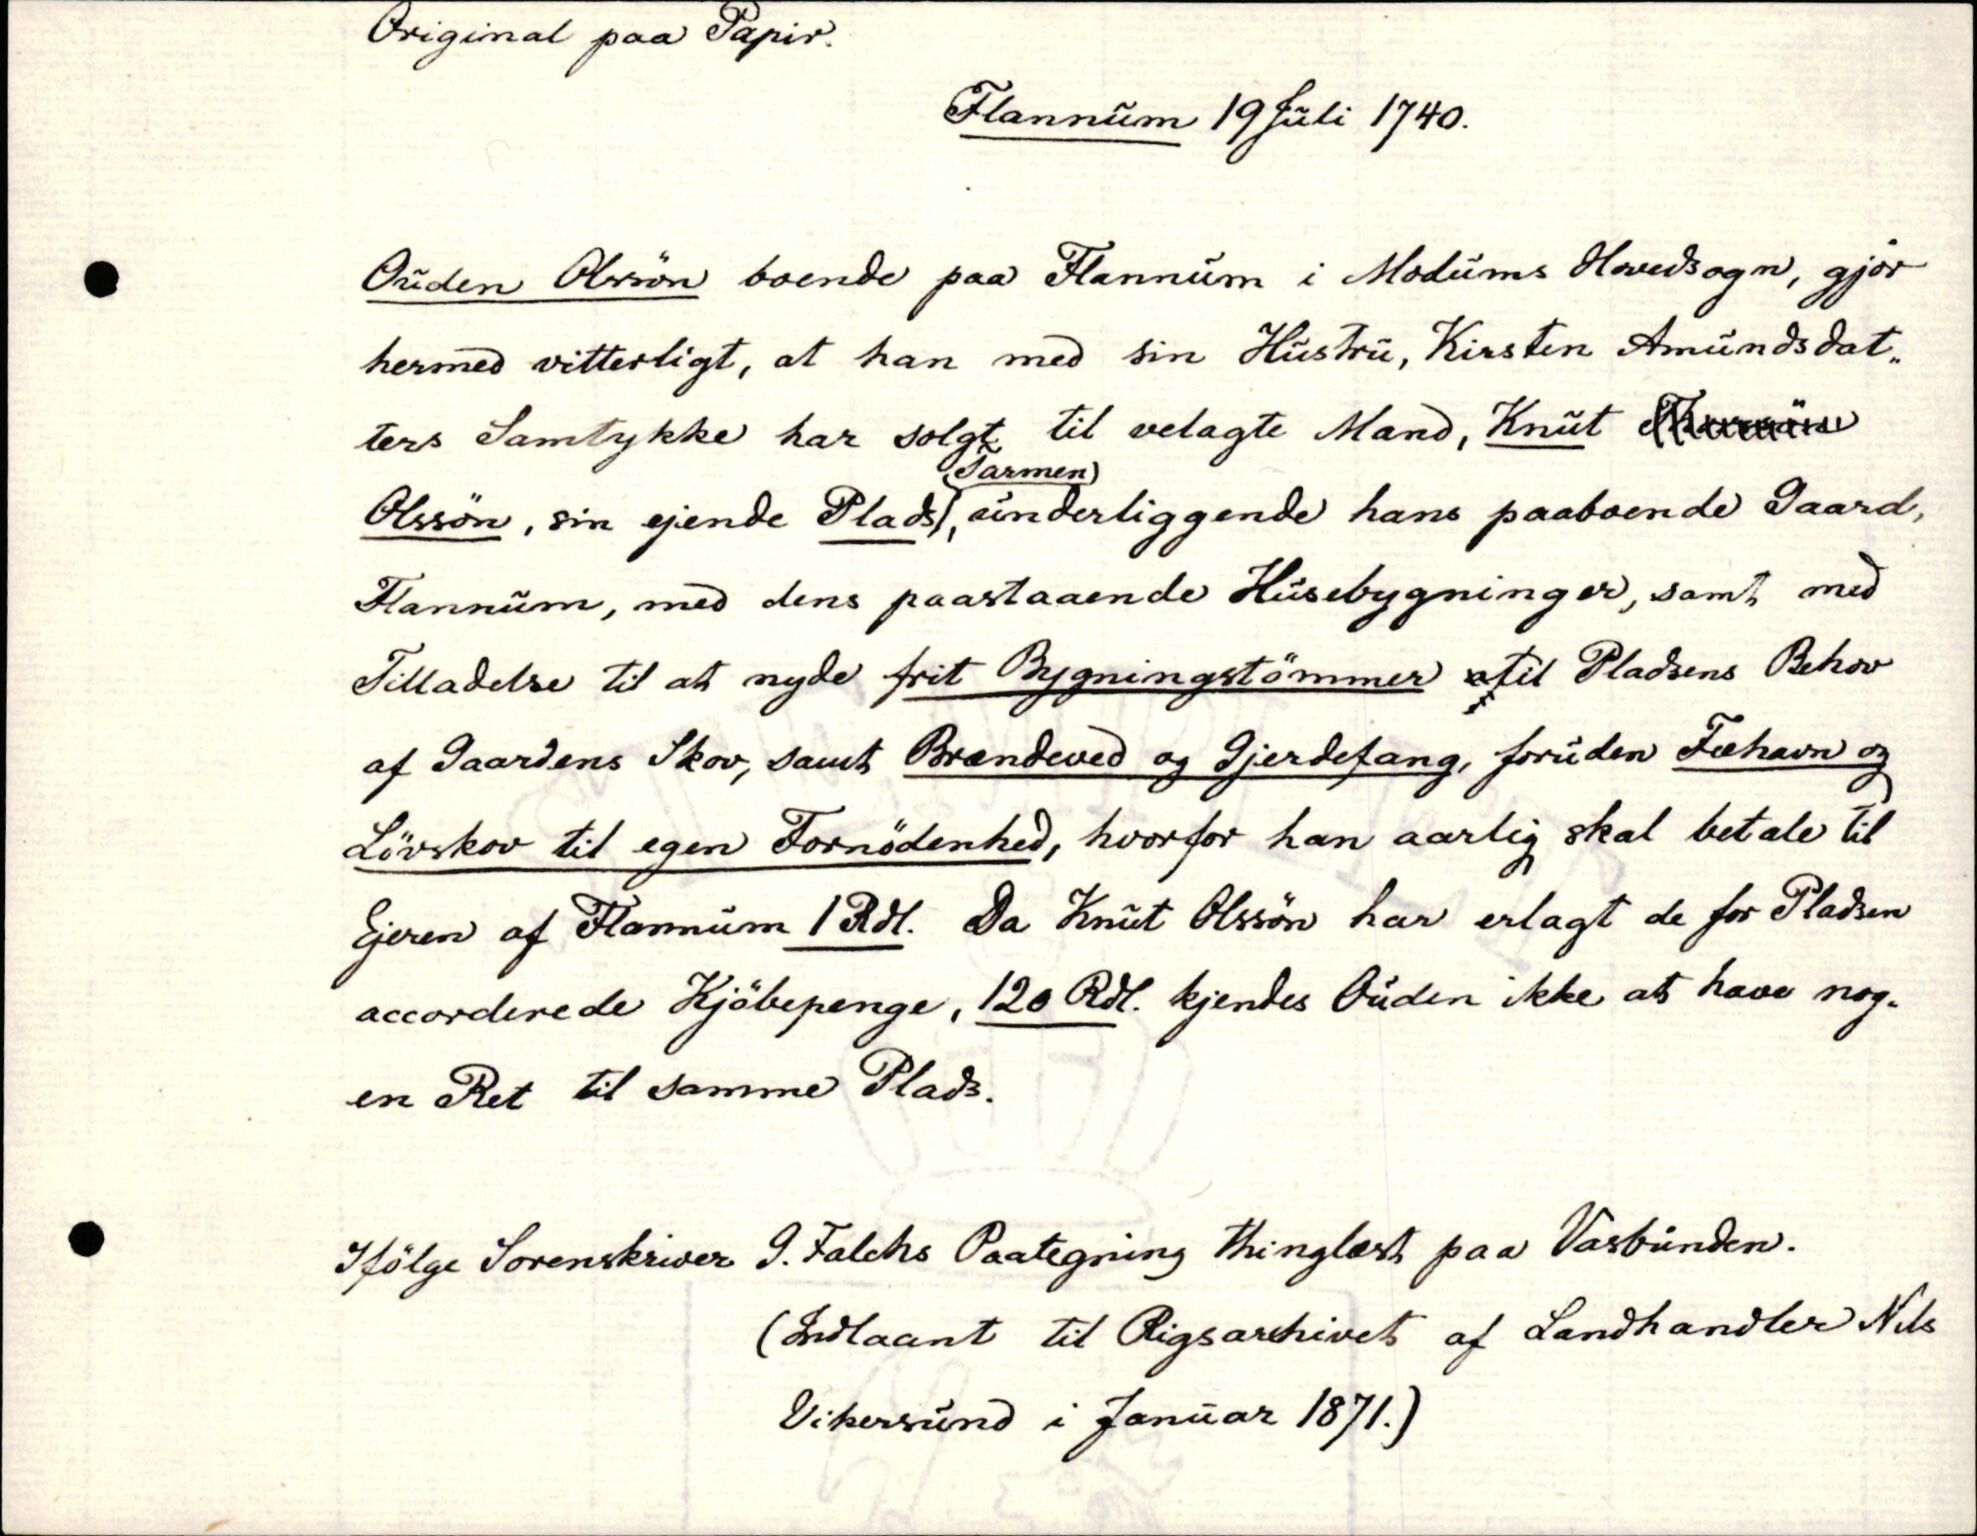 Original paa Papir.
Flannum 19 Juli 1740.
Ouden Olssön boende paa Flannum i Modums Hovedsogn, gjör
hermed vitterligt, at han med sin Hustru, Kirsten Amundsdat„
ters Samtykke har solgt til velagte Mand, Knut
(Tarmen)
Olssön, sin ejende Plads, underliggende hans paaboende Gaard,
Flannum, med dens paastaaende Husebygninger, samt med
Tilladelse til at nyde frit Bygningstömmer til Pladsens Behov
af Gaardens Skov, samt Brændeved og Gjerdefang, foruden Fæhavn og
Lövskov til egen Fornödenhed, hvorfor han aarlig skal betale til
Ejeren af Flannum 1 Rdl. Da Knut Olssön har erlagt de for Pladsen
accorderede Kjöbepenge, 120 Rdl. kjendes Ouden ikke at have nog-
en Ret til samme Plads.
Ifölge Sorenskriver G. Falchs Paategning thinglæst paa Vasbunden.
(Indlaant til Rigsarchivet af Landhandler Nils
Vikersund i Januar 1871.)